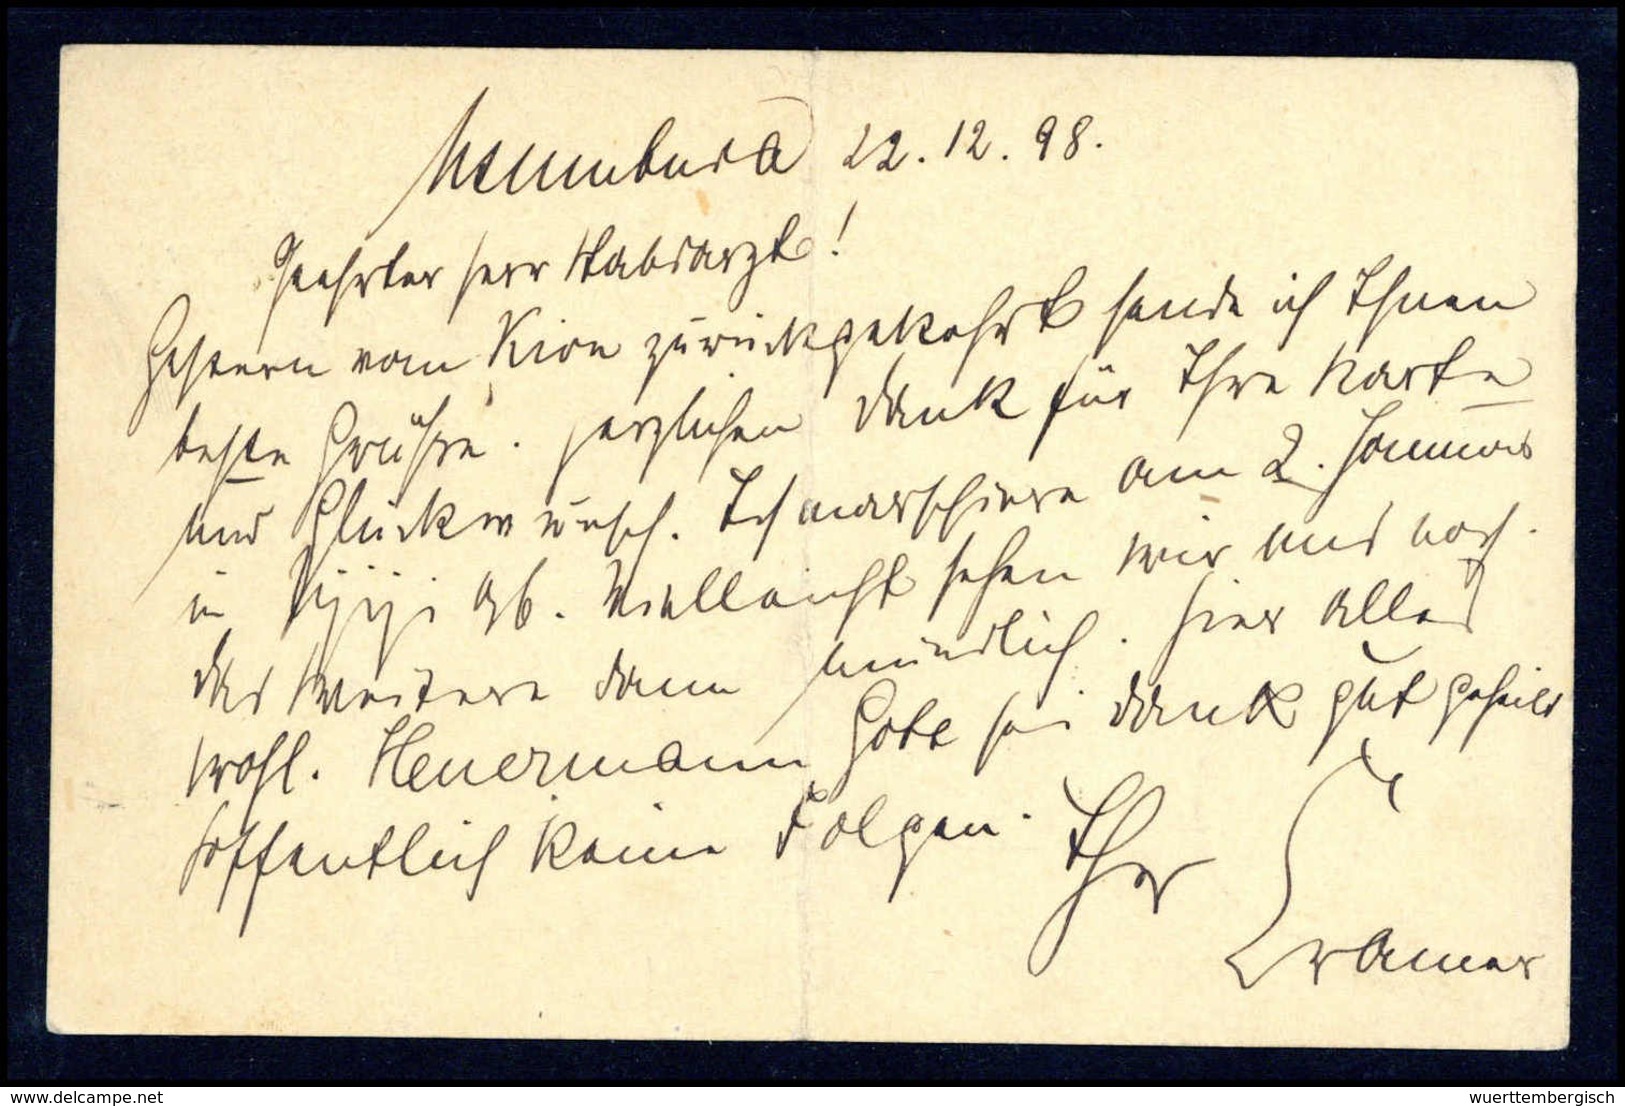 Usumbura 22.12.98.
Geehrter Herr Stabsarzt!
Gestern vom Kivu zurückgekehrt sende ich Ihnen
beste Grüße. Herzlichen Dank für Ihre Karte
und Glückwunsch. Ich marschiere am 2. Januar
in Ujiji ab. Vielleicht sehen wir uns noch.
das Weitere dann mündlich. Hier alles
wohl. Heuermann Gott sei Dank gut geheilt
hoffentlich keine Folgen. Ihr
Cramer
delcampe.net
wuerttembergisch